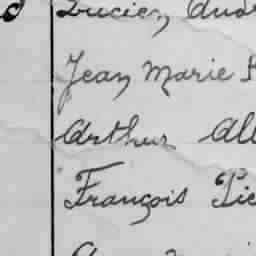 Lucien
Jean Marie
Arthur All
François Pie